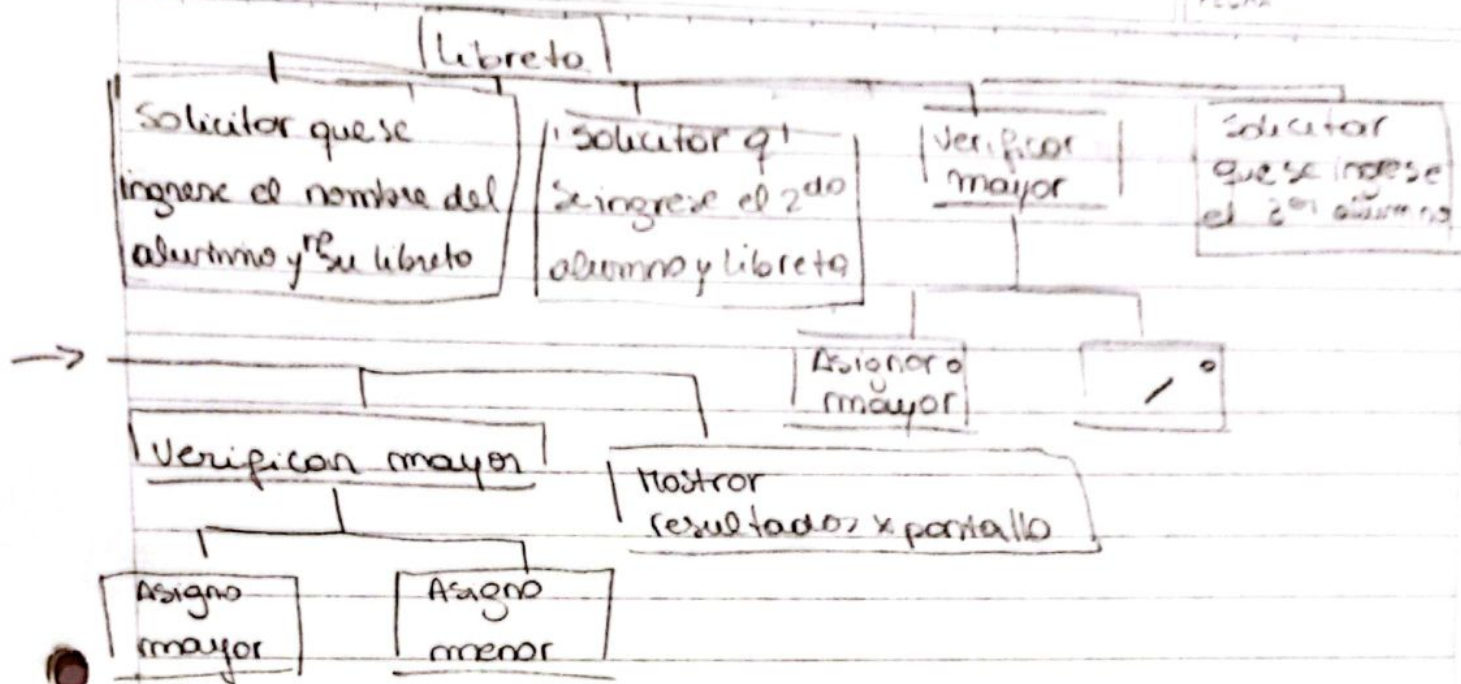 Libreta
Solicitar que se
ingrese el nombre del
alumno y nº su libreta
Solicitar q'
se ingrese el 2do
alumno y libreta
Verificar
mayor
Solicitar
que se ingrese
el alumno
Asignar a
mayor
Verifican mayor
Mostrar
resultados x pantalla
Asigno
mayor
Asigno
menor